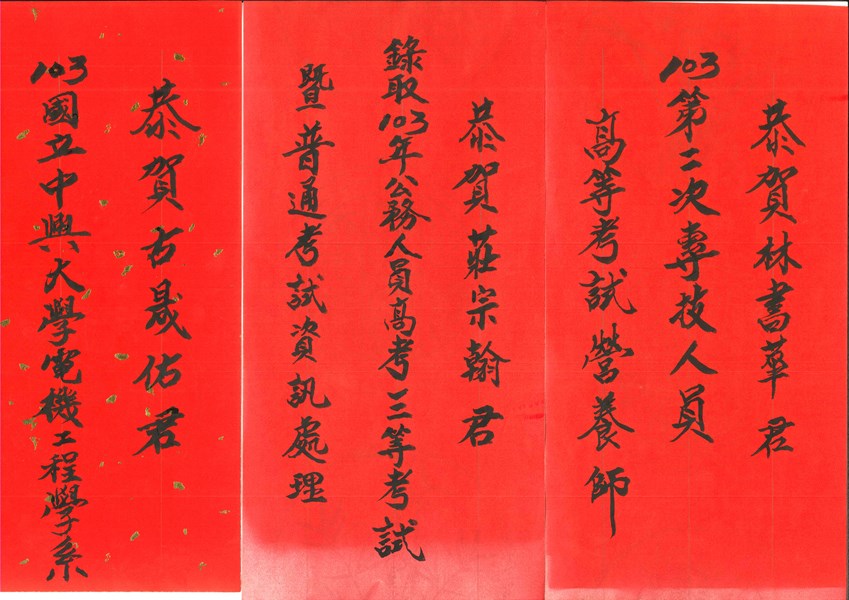 恭賀林書葦君
103第二次專技人員
高等考試營養師
恭賀莊宗翰君
錄取103年公務人員高考三等考試
暨普通考試資訊處理
恭賀古晟佑君
103國立中興大學電機工程學系